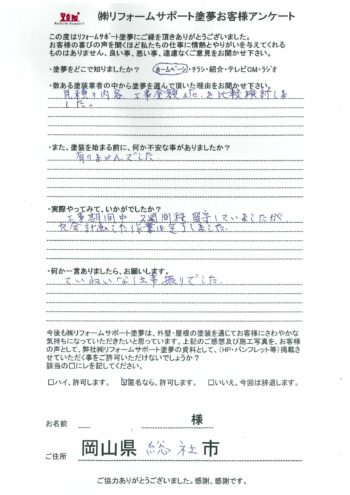 TOM
Reform Support
㈱リフォームサポート塗夢お客様アンケート
この度はリフォームサポート塗夢にご縁を頂きありがとうございました。
お客様の喜びの声を聞くほど私たちの仕事に情熱とやりがいを与えてくれる
ものはありません、良い事、悪い事、遠慮なくご意見をお聞かせ下さい。
・塗夢をどこで知りましたか？ ホームページ・チラシ・紹介・テレビCM・ラジオ
・数ある塗装業者の中から塗夢を選んで頂いた理由をお聞かせ下さい。
見積り内容、工事金額etc.を比較検討しま
した。
・また、塗装を始まる前に、何か不安な事がありましたか？
有りませんでした。
・実際やってみて、いかがでしたか？
工事期間中 2週間程留守していましたが
充分計画した作業は完了しました。
・何か一言ありましたら、お願いします。
ていねいな仕事振りでした。
今後も㈱リフォームサポート塗夢は、外壁・屋根の塗装を通じてお客様にさわやかな
気持ちになっていただきたいと思っています。上記のご感想及び施工写真を、お客様
の声として、弊社㈱リフォームサポート塗夢の資料として、(HP・パンフレット等)掲載さ
せていただく事をご許可いただけないでしょうか？
該当の□にレを記してください。
□ハイ、許可します。 ☑匿名なら、許可します。 □いいえ、今回は辞退します。
お名前 様
ご住所 岡山県 総社市
ご協力ありがとうございました。感謝、感謝です。